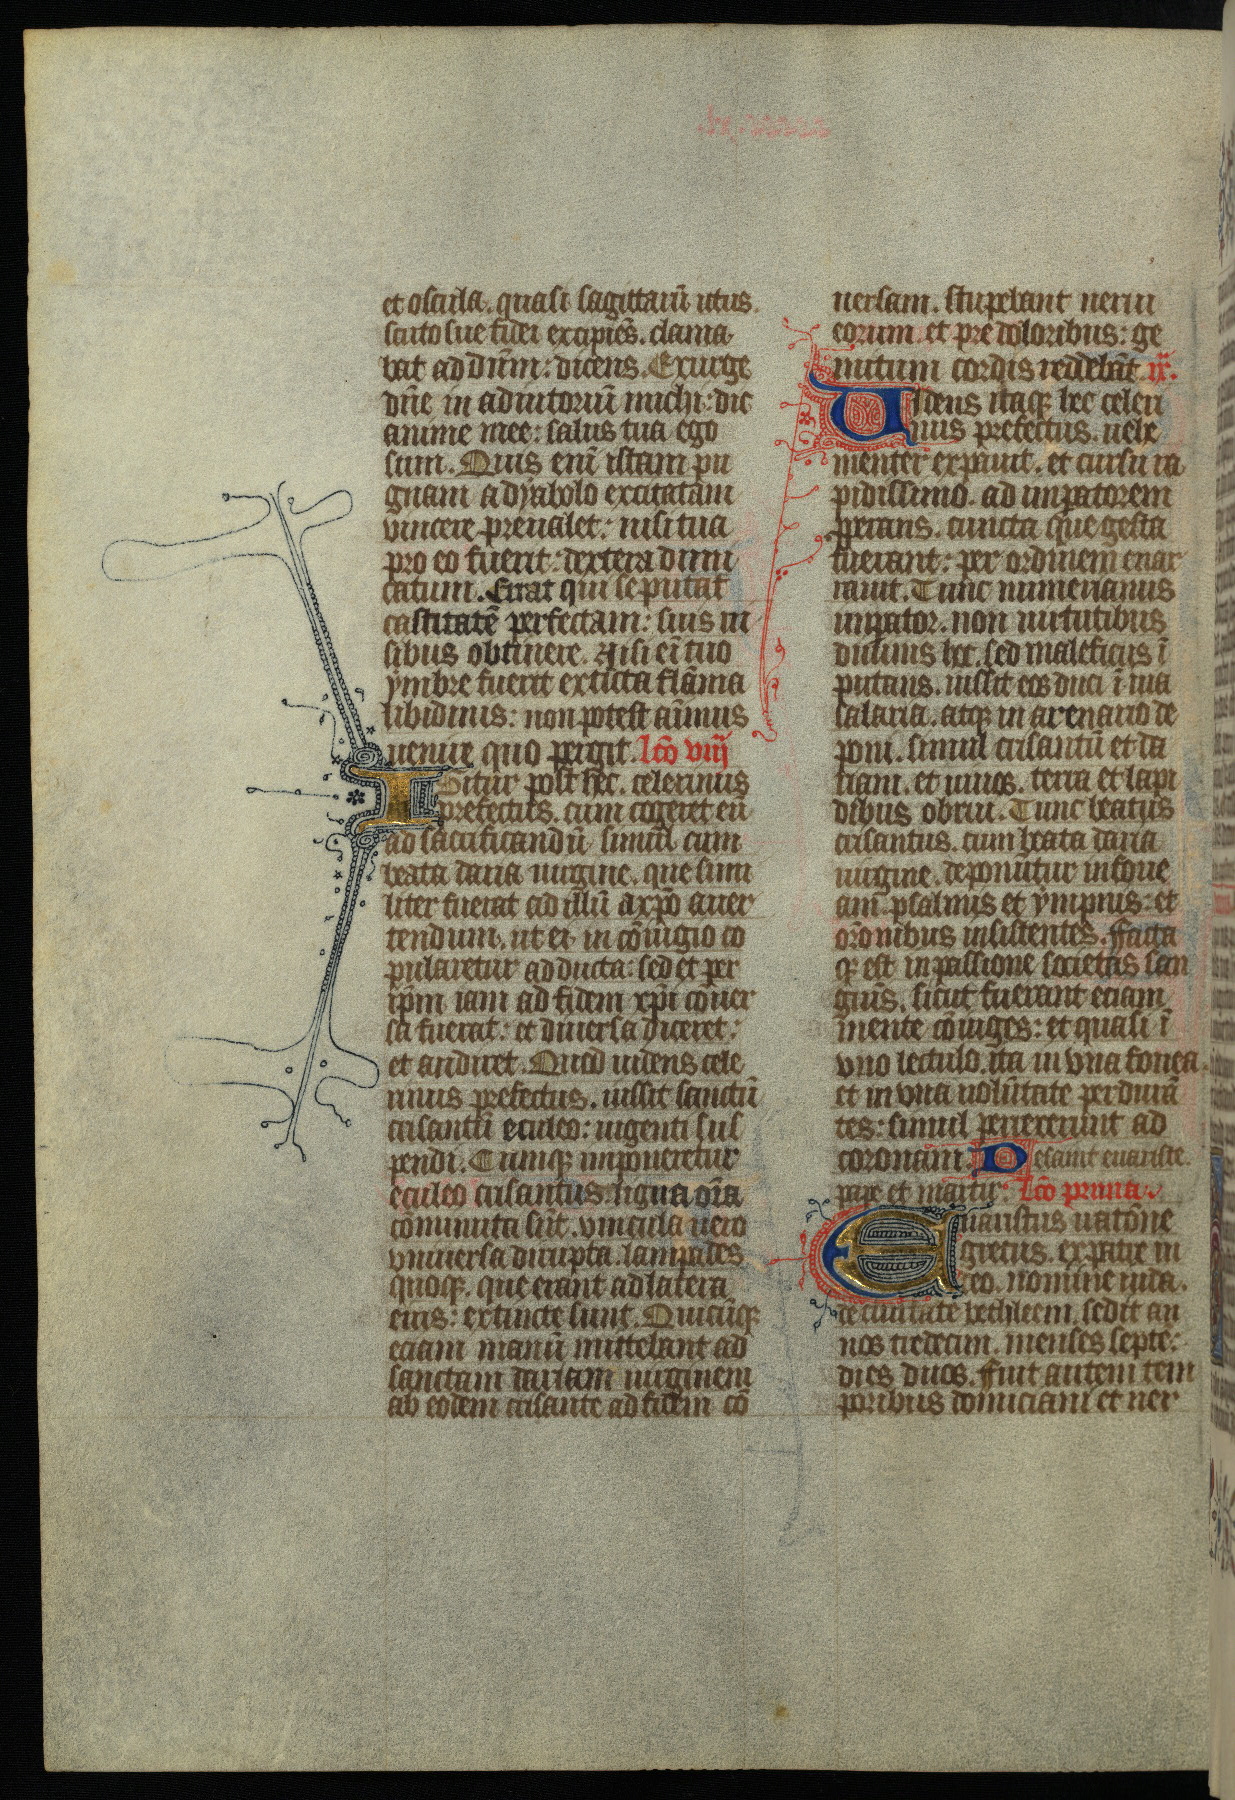 et oscula. quasi sagittarū ictus
scuto sue fidei excipiēs. clama
bat ad dn̄m: dicens. Exurge
dn̄e in adiutoriū michi: dic
anime mee: salus tua ego
sum. Quis enī istam pu
gnam a dyabolo excitatam
vincere preualet: nisi tua
pro eo fuerit: dextera dimi
catum. Errat qui se putat
castitatē perfectam: suis ui
sibus obtinere. Nisi eī tuo
ymbre fuerit extincta flāma
libidinis: non potest animus
uenire quo pergit. lc̄o viij
Igitur post hec. celerinus
prefectus. cum cogeret eū
ad sacrificandū simul cum
beata daria uirgine. que simi
liter fuerat ad illū a xp̄o auer
tendum. ut ei in cōiugio co
pularetur adducta: sed et per
ip̄m iam ad fidem xp̄i conuer
sa fuerat: et diuersa diceret:
et audiret. Quod uidens cele
rinus prefectus. iussit sanctū
crisantū eculeo: uigenti sus
pendi. Cumqꝫ imponeretur
eculeo crisantus: ligna om̄ia
cōminuta sūt. vincula uero
vniuersa dirupta. lampades
quoqꝫ. que erant ad latera
eius: extincte sunt. Quicūqꝫ
eciam manū mittebant ad
sanctam dariam uirginem
ab eodem crisante ad fidem cō
uersam. stupebant nerui
eorum et pre doloribus: ge
mitum cordis reddebāt. ix.
Uidens itaqꝫ hec celeri
nus prefectus. uehe
menter expauit. et cursu ra
pidissimo. ad imꝑatorem
ꝓperans. cuncta que gesta
fuerant: per ordinem enar
rauit. Tunc numerianus
imꝑator. non uirtutibus
diuinis hec. sed maleficijs ī
putans. iussit eos duci ī uia
salaria. atqꝫ in arenario de
poni. simul crisantū et da
riam. et uiuos. terra et lapi
dibus obrui. Tunc beatus
crisantus. cum beata daria
uirgine. deponūtur in foue
am. psalmis et ympnis: et
orōnibus insistentes. ffacta
qꝫ est in passione societas san
guīs. sicut fuerant eciam
mente cōiuges: et quasi ī
vno lectulo. ita in vna fouea
et in vna uolūtate perdurā
tes: simul peruenerunt ad
coronam. De sancti euariste.
pape et martir̄. lc̄o prima.
Euaristus natōne
grecus. ex patre iu
deo. nomine iuda.
de ciuitate bethleem. sedit an
nos tredecim. menses septē:
dies duos. ffuit autem tem
poribus domiciani et ner